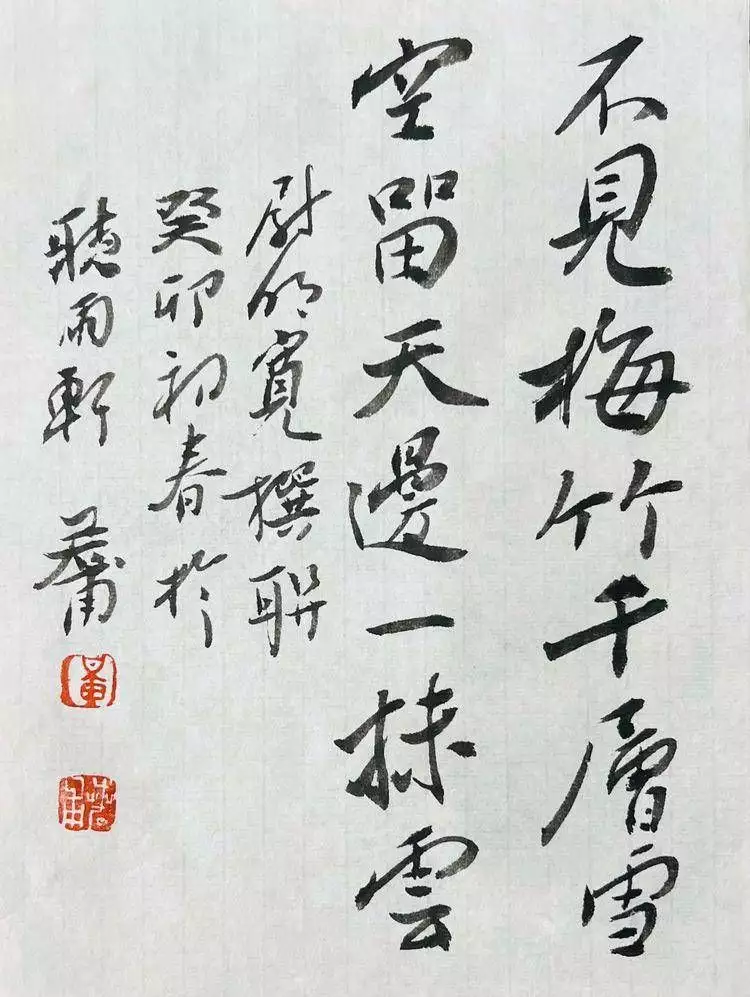 不見梅竹千層雪
空留天邊一抹雲
尉明寬撰聯
癸卯初春於
聽雨軒